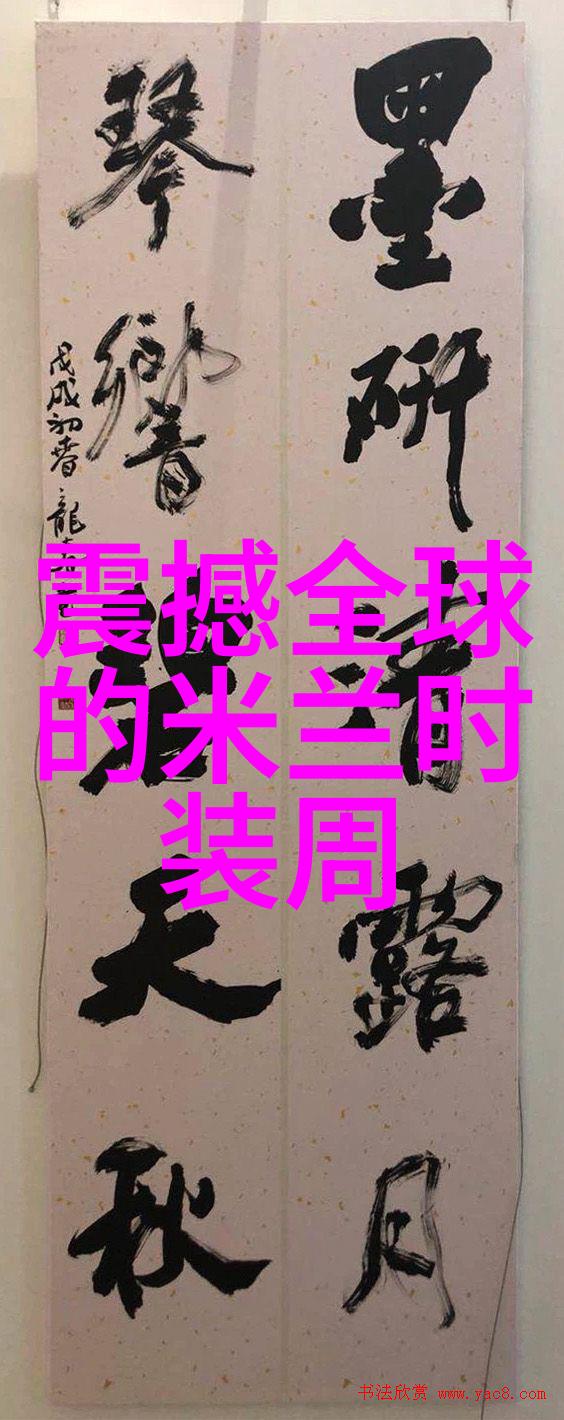 墨研清露月
琴響碧天秋
戊戌初春
龍
震撼全球
的米兰时
装周
书法欣赏 www.yac8.com